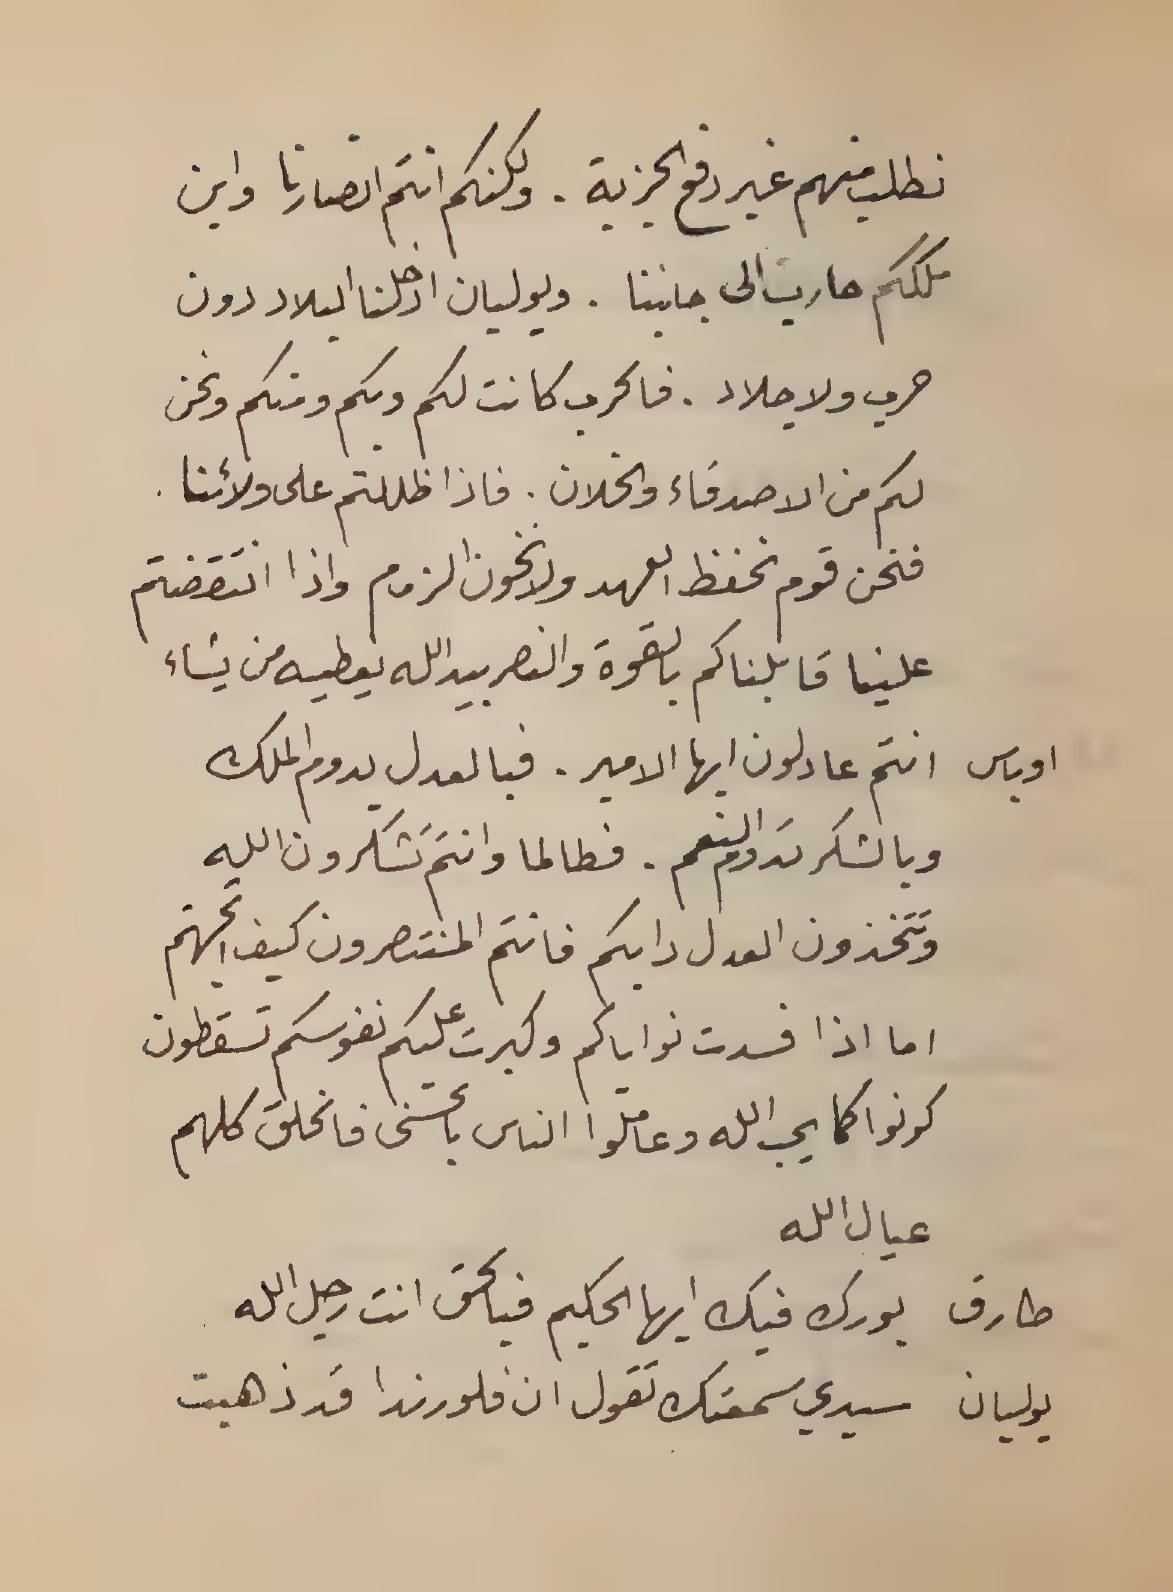 نطلب منهم غير دفع الجزية . ولكنكم انتم انصارنا وابن
ملككم حارب الى جانبنا . ويوليان ادخلنا البلاد دون
حرب ولا جلاد . فالحرب كانت لكم وبكم ومنكم ونحن
لكم من الاصدقاء والخلان . فاذا ظللتم على ولائنا .
فنحن قوم نحفظ العهد ولا نخون الزمام واذا انتقضتم
علينا قابلناكم بالقوة والنصر بيد الله يعطيه من يشاء
اوباس انتم عادلون ايها الامير . فبالعدل يدوم الملك
وبالشكر تدوم النعم . فطالما وانتم تشكرون الله
وتتخذون العدل دابكم فانتم المنتصرون كيف اتجهتم
اما اذا فسدت نواياكم وكبرت عليكم نفوسكم تسقطون
كونوا كما يحب الله وعاملوا الناس بالحسنى فالخلق كلهم
عيال الله
طارق بورك فيك ايها الحكيم فبالحق انت رجل الله
يوليان سيدي سمعتك تقول ان فلورندا قد ذهبت